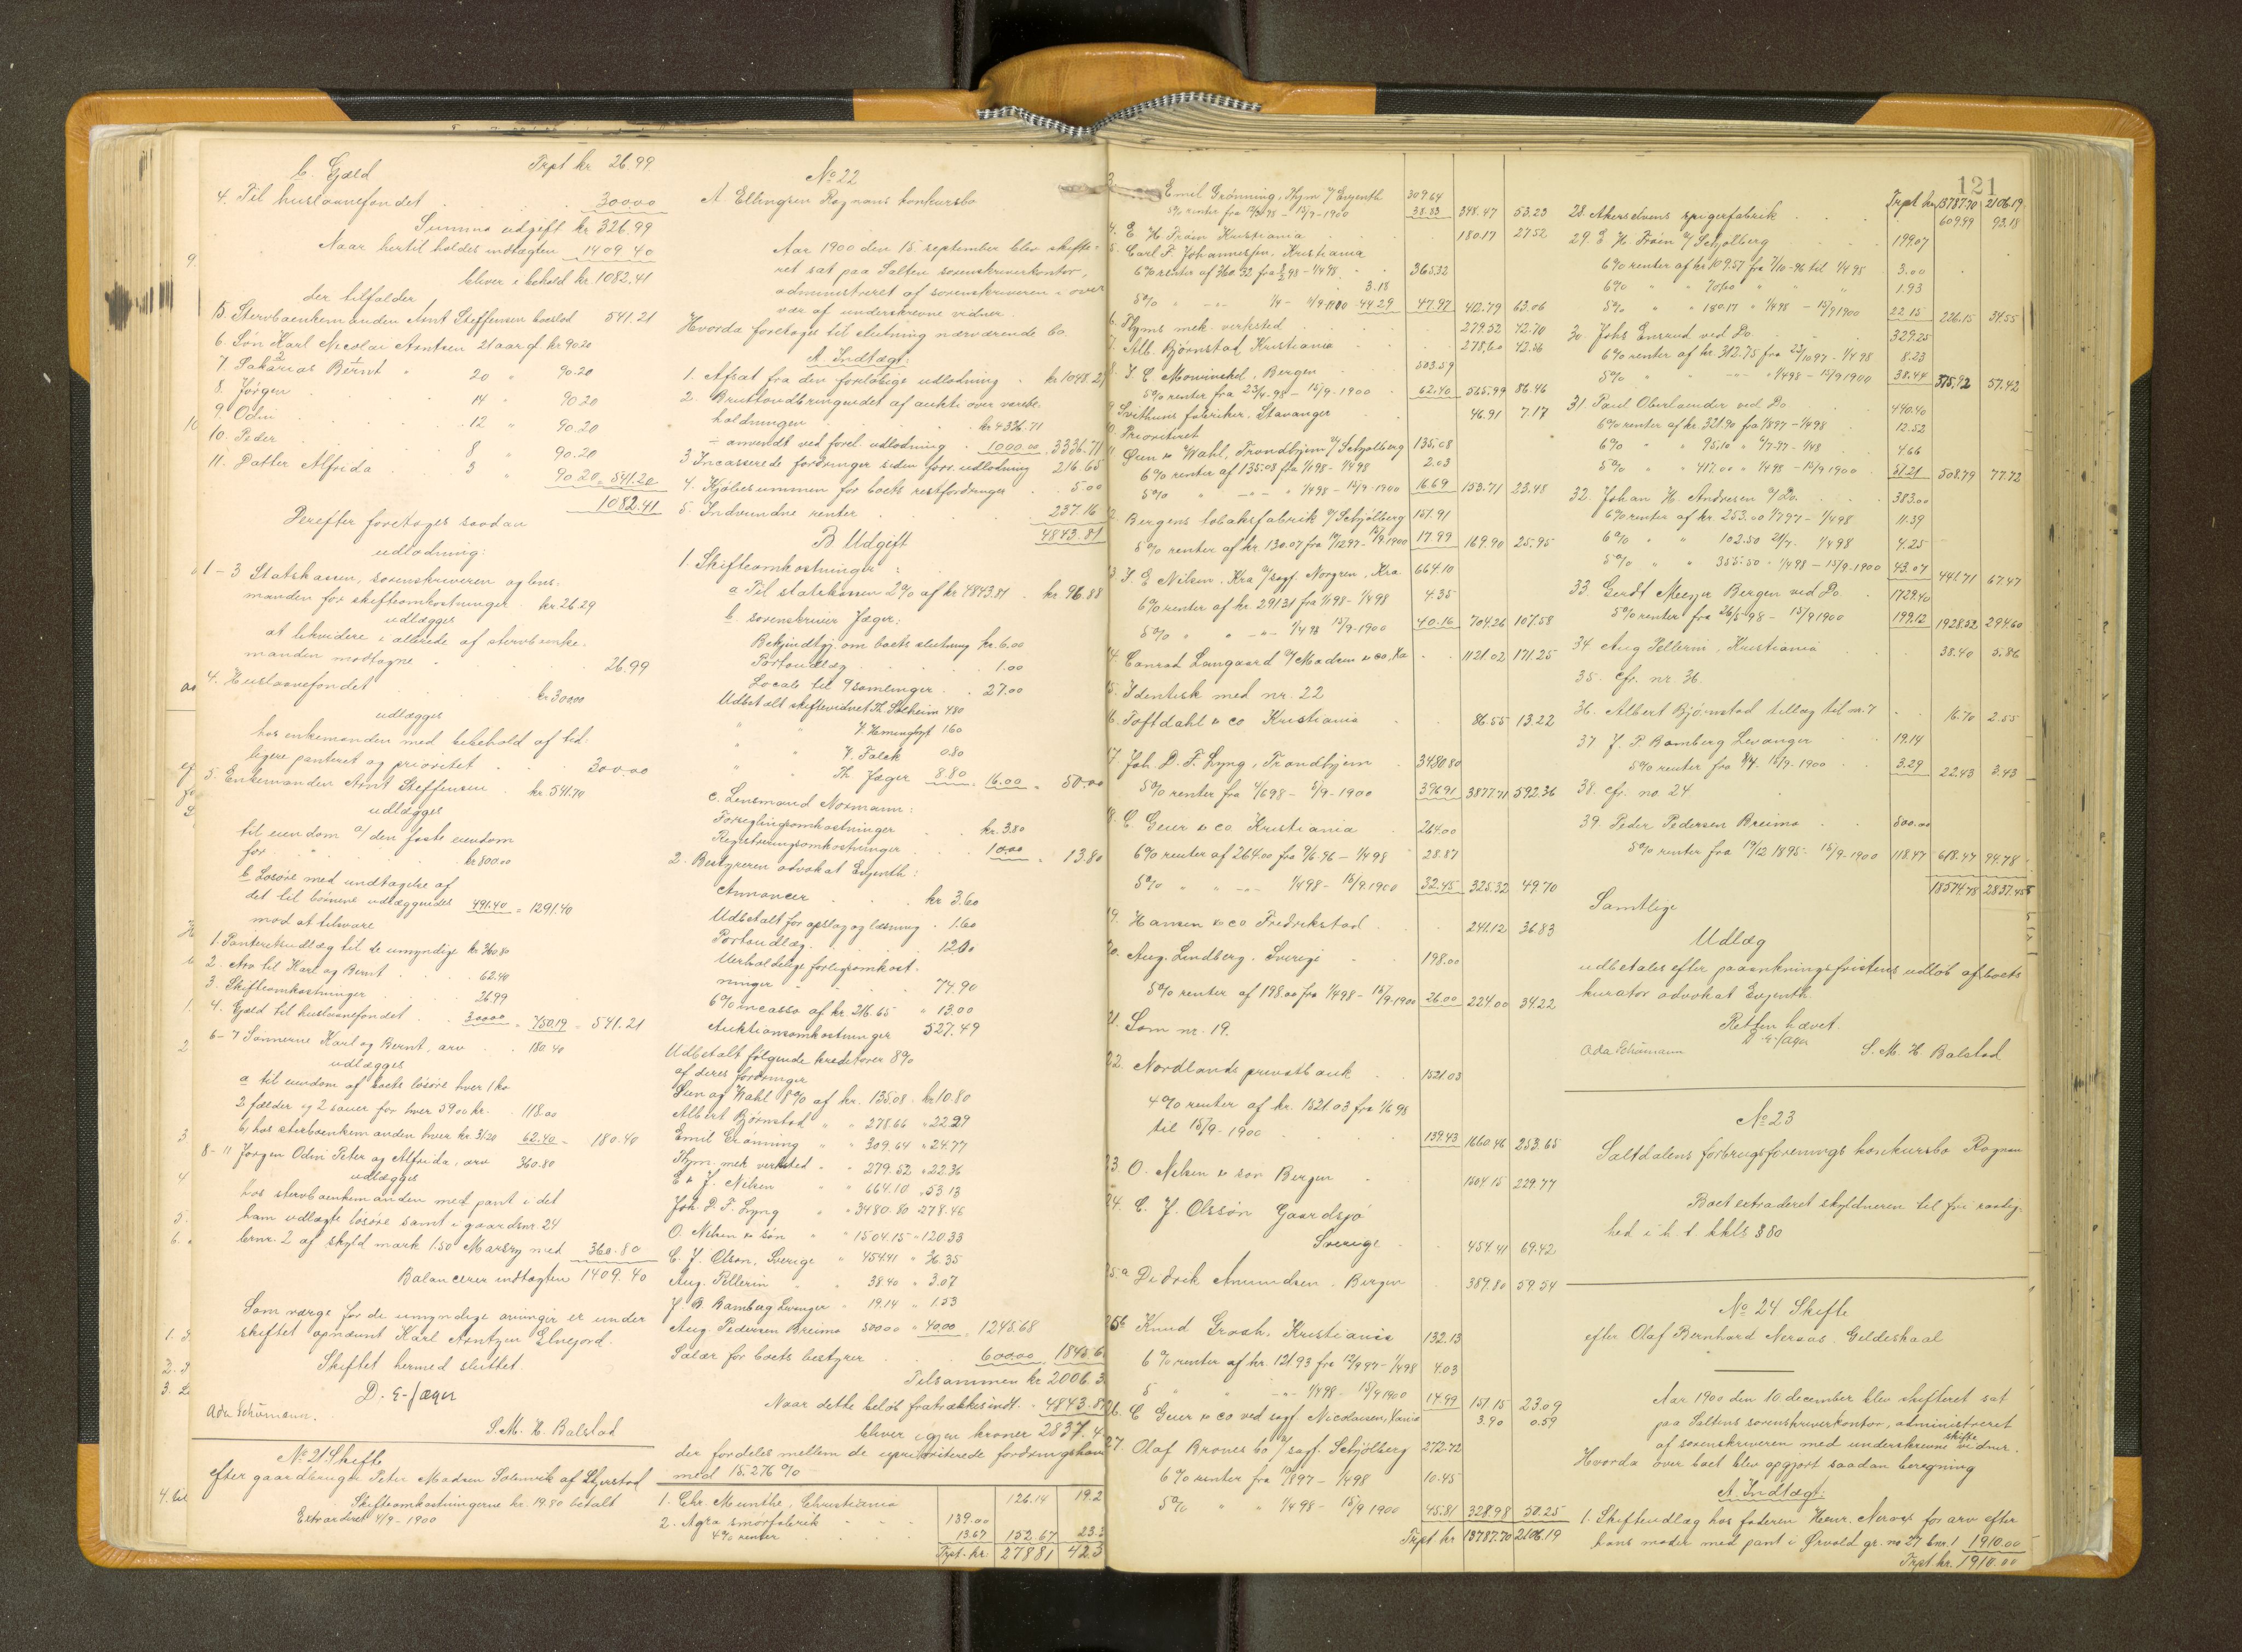 b. Gjæld Trpt kr. 26.99
4. Til huslaanefondet 300.00
Summa udgift kr 326.99
Naar hertil holdes indtægten 1409.40
bliver i behold kr. 1082.41
der tilfalder
5. Stervboenkemanden Arnt Steffensen boeslod 541.21
6. Søn Karl Nicolai Arntsen 21 aar gl. kr 90.20
7. Sakarias Bernt " 20 " 90.20
8. Jørgen 14 " 90.20
9. Odin 12 " 90.20
10. Peder 8 " 90.20
11. Datter Alfrida 3 " 90.20 = 541.20
1082.41
Derefter foretoges saadan
udlodning:
1-3 Statskassen, sorenskriveren og lens-
manden for skifteomkostninger kr. 26.29
udlægges
at likvidere i allerede af stervboenke-
manden modtagne 26.99
4. Huslaanefondet kr 300.00
udlægges
hos enkemanden med bibehold af tid-
ligere panteret og prioritet 300.00
5. Enkemanden Arnt Steffensen kr 541.70
udlægges
til eiendom a/ den faste eiendom
for kr 800.00
b Løsøre med undtagelse af
det til børnene udlæggendes 491.40 = 1291.40
mod at tilsvare
1. Panteretsudlæg til de umyndige kr. 360.80
2. Arv til Karl og Bernt 62.40
3. Skifteomkostninger 26.99
4. Gjæld til huslaanefondet 300.00 = 750.19 = 541.21
6-7 Sønnerne Karl og Bernt, arv 180.40
udlægges
a til eiendom af boets løsøre hver 1 ko
2 fælder og 2 sauer for hver 59.00 kr. 118.00
b/ hos stervboenkemanden hver kr. 31.20 62.40 = 180.40
8-11 Jørgen Odin Peter og Alfrida, arv 360.80
udlægges
hos stervboenkemanden med pant i det
ham udlagte løsøre samt i gaardsnr. 24
brnr. 2 af skyld mark 1.50 med 360.80
Balancerer indtægten 1409.40
Som værge for de umyndige arvinger er under
skiftet opnævnt Karl Arntzen Elnefjord.
Skiftet hermed sluttet.
D. E. Jæger
Ada Schømann.
S. M. H. Balstad
No 21 Skifte
efter gaardbruger Peter Madsen Solenvik af Skjerstad
Skifteomkostningerne kr. 19.80 betalt
Extraderet 4/9 - 1900
No 22
A. Ellingsen Rognans konkursbo
Aar 1900 den 15 september blev skifte-
ret sat paa Salten sorenskriverkontor,
administreret af sorenskriveren i over
vær af underskrevne vidner
Hvorda foretoges til slutning nærværende bo.
A. Indtægt:
1. Afsat fra den foreløbige udlodning kr 1048.2
2. Bruttoudbringendet af auktion over varebe-
holdningen kr 4336.71
÷ anvendt ved forel. udlodning 1000.00 3336.71
3 Incasserede fordringer siden forr. udlodning 216.65
4. Kjøbesummen for boets restfordringer 5.00
5. Indvundne renter 237.16
4843.81
B Udgift
1. Skifteomkostninger:
a Til statskassen 2% af kr 4843.81 kr 96.88
b. sorenskriver Jæger:
Bekjendtgj. om boets slutning kr. 6.00
Portoudlæg 1.00
Locale til 9 samlinger 27.00
Udbetalt skiftevidnet Th. Solheim 4.80
" " 1.60
" " J. Falck 0.80
" " Th. Jæger 8.80 = 16.00 = 50.00
c. Lensmand Normann:
Forseglingsomkostninger kr. 3.80
Registreringsomkostninger 10.00 = 13.80
2. Bestyreren advokat Evjenth:
Annoncer kr 3.60
Udbetalt for opslag og læsning 1.60
Portoudlæg 12.00
Uerholdelige forligsomkost-
ninger 74.90
6% incasso af kr. 216.65 " 13.00
Auktionsomkostninger 527.49
Udbetalt følgende kreditorer 8%
af deres fordringer
Sun og Wahl 8% af kr. 135.08 kr 10.80
Albert Bjørnstad " " 278.66 " 22.29
Emil Grønning " " 309.64 " 24.77
Thjm. mek verksted " " 279.52 " 22.36
E & J. Nilsen " " 664.10 " 53.13
Joh. D. F. Lyng " " 3480.80 " 278.46
O. Nilsen & søn " " 1504.15 " 120.33
C. J. Olson, Sverige " 454.41 " 36.35
Aug. Pellerin " " 38.40 " 3.07
J. B. Bamberg Levanger " 19.14 " 1.53
Aug. Pedersen Breimo 500.00 " 40.00 = 1245.68
Salær for boets bestyrer 600.00 1845.6
Tilsammen kr 2006.3
Naar dette beløb fratrækkes indt. 4843.81
bliver igjen kroner 2837.4
der fordeles mellem de uprioriterede fordringshave
med 15.276%
1. Chr. Munthe, Christiania 126.14 19.2
2. Agra smørfabrik 139.00
4% renter 13.67 152.67 23.3
Trpt. kr. 278.81 42.5
3. Emil Grønning, Thjm v/ Evjenth 309.64
5% renter fra 12/3 98 - 15/9-1900 38.83 348.47 53.23
4. E. H. Frøen Kristiania 180.17 27.52
5. Carl F. Johannessen, Kristiania
6% renter af 360.32 fra 98 - 1/4 98 365.32
3.18
5% " -"- 1/4 - 15/9-1900 44.29 47.97 412.79 63.06
6. Thjms mek. verksted 279.52 42.70
7. Alb. Bjørnstad Kristiania 278.60 42.56
8. J C. Mowinckel, Bergen 503.59
5% renter fra 23/4-98 - 15/9-1900 62.40 565.99 86.46
9. Svithuns fabriker. Stavanger 46.91 7.17
10. Prioritert
11 Øien & Wahl, Trondhjem v/ Schjølberg 135.08
6% renter af 135.08 fra 1/1 98 - 1/4 98 2.03
5% " -"- " 1/4 98 - 15/9-1900 16.69 153.71 23.48
12. Bergens tobaksfabrik v/ Schjølberg 151.91
5% renter af kr. 130.07 fra 19/12 97 - 15/9-1900 17.99 169.90 25.95
13. J. E. Nilsen, Kra v/ sagf. Norgren, Kra 664.10
6% renter af kr. 291.31 fra 1/1 98 - 1/4 98 4.35
5% " " -"- 1/4 98 15/9-1900 40.16 704.26 107.58
14. Conrad Langaard v/ Madsen & co, Ka 1121.02 171.25
15. Identisk med nr. 22
16. Toftdahl & co Kristiania 86.55 13.22
17 Joh. D. F. Lyng, Trondhjem 3480.80
5% renter fra 4/6 98 - 15/9-1900 396.91 3877.71 592.36
18. C. Geier & co. Kristiania 264.00
6% renter af 264.00 fra 9/6-96 - 1/4 98 28.87
5% " " -"- 1/4 98 - 15/9 1900 32.45 325.32 49.70
19. Hansen & co Fredrikstad 241.12 36.83
20. Aug. Lindberg. Sverige 198.00
5% renter af 198.00 fra 1/4 98 - 15/9-1900 26.00 224.00 34.22
21. Som nr. 19.
22. Nordlands privatbank 1521.03
4% renter af kr. 1521.03 fra 1/6 98
til 15/9-1900 139.43 1660.46 253.65
23 O. Nilsen & søn Bergen 1504.15 229.77
24. C. J. Olssøn Gaardsjø
Sverige 454.41 69.42
25.a Didrik Amundsen, Bergen 389.80 59.54
25b Knud Grosh, Kristiania 132.13
6% renter af kr. 121.93 fra 12/9 97 - 1/4 98 4.03
5 " " -"- 1/4 98 - 15/9 1900 14.99 151.15 23.09
26. C Geier & co ved sagf. Nicolaisen, Xania 3.90 0.59
27. Olaf Brones bo v/ sagf. Schjølberg 272.72
6% renter fra 10/8 97 - 1/4 98 10.45
5% " " 1/4 98 - 15/9 1900 45.81 328.98 50.25
Trpt kr 13787.70 2106.19
121
Trpt kr. 13787.70 2106.19
28. Akerselvens spigerfabrik 609.99 93.18
29. E H. Frøen v/ Schjølberg 199.07
6% renter af kr 109.57 fra 7/10-96 til 1/4 98 3.00
6% " " 70.60 " " 1.93
5% " " 180.17 " 1/4 98 - 15/9 1900 22.15 226.15 34.55
30. Johs Ensrud ved Do. 329.25
6% renter af kr. 312.75 fra 23/10 97 - 1/4 98 8.23
5% " " -"- 1/4 98 - 15/9 1900 38.44 375.92 57.42
31. Paul Oberlander ved Do 440.40
6% renter af kr. 321.90 fra 1/8 97 - 1/4 98 12.52
6% " " 95.10 " 6/7-97 - 1/4 8 4.66
5% " " 417.00 " 1/4 98 - 15/9 1900 51.21 508.79 77.72
32. Johan H. Andresen v/ Do. 383.00
6% renter af kr. 253.00 1/7 97 - 1/4 98 11.39
6% " " 102.50 21/7 - 1/4 98 4.25
5% " " 355.50 " 1/4 98 - 15/9-1900 43.07 441.71 67.47
33. Gerdt Meyer Bergen ved Do. 1729.40
5% renter fra 26/5-98 - 15/9 1900 199.12 1928.52 294.60
34 Aug Pellerin, Kristiania 38.40 5.86
35. cfr. nr. 36.
36. Albert Bjørnstad tillæg til nr. 7 16.70 2.55
37 J. P. Bamberg Levanger 19.14
5% renter fra 15/9-1900 3.29 22.43 3.43
38. cfr. no. 24
39. Peder Pedersen Breimo 500.00
5% renter fra 19/12 1895 - 15/9-1900 118.47 618.47 94.78
18574.78 2837.45
Samtlige
Udlæg
udbetales efter paaankningsfristens udløb af boets
kurator advokat Evjenth.
Retten hævet.
D. E. Jæger
Ada Schømann
S. M. H. Balstad
No 23
Saltdalens forbrugsforenings konkursbo Rognan
Boet extraderet skyldneren til fri raadig-
hed i h. t. kkls § 80
No 24 Skifte
efter Olaf Bernhard Nersas. Gildeskaal
Aar 1900 den 10 december blev skifteret sat
paa Saltens sorenskriverkontor, administreret
af sorenskriveren med underskrevne skifte vidner.
Hvorda over boet blev opgjort saadan beregning
A. Indtægt:
1. Skifteudlæg hos faderen Henr. Nersas for arv efter
hans moder med pant i Ørvold gr. no 27 bnr. 1 1910.00
Trpt. kr. 1910.00